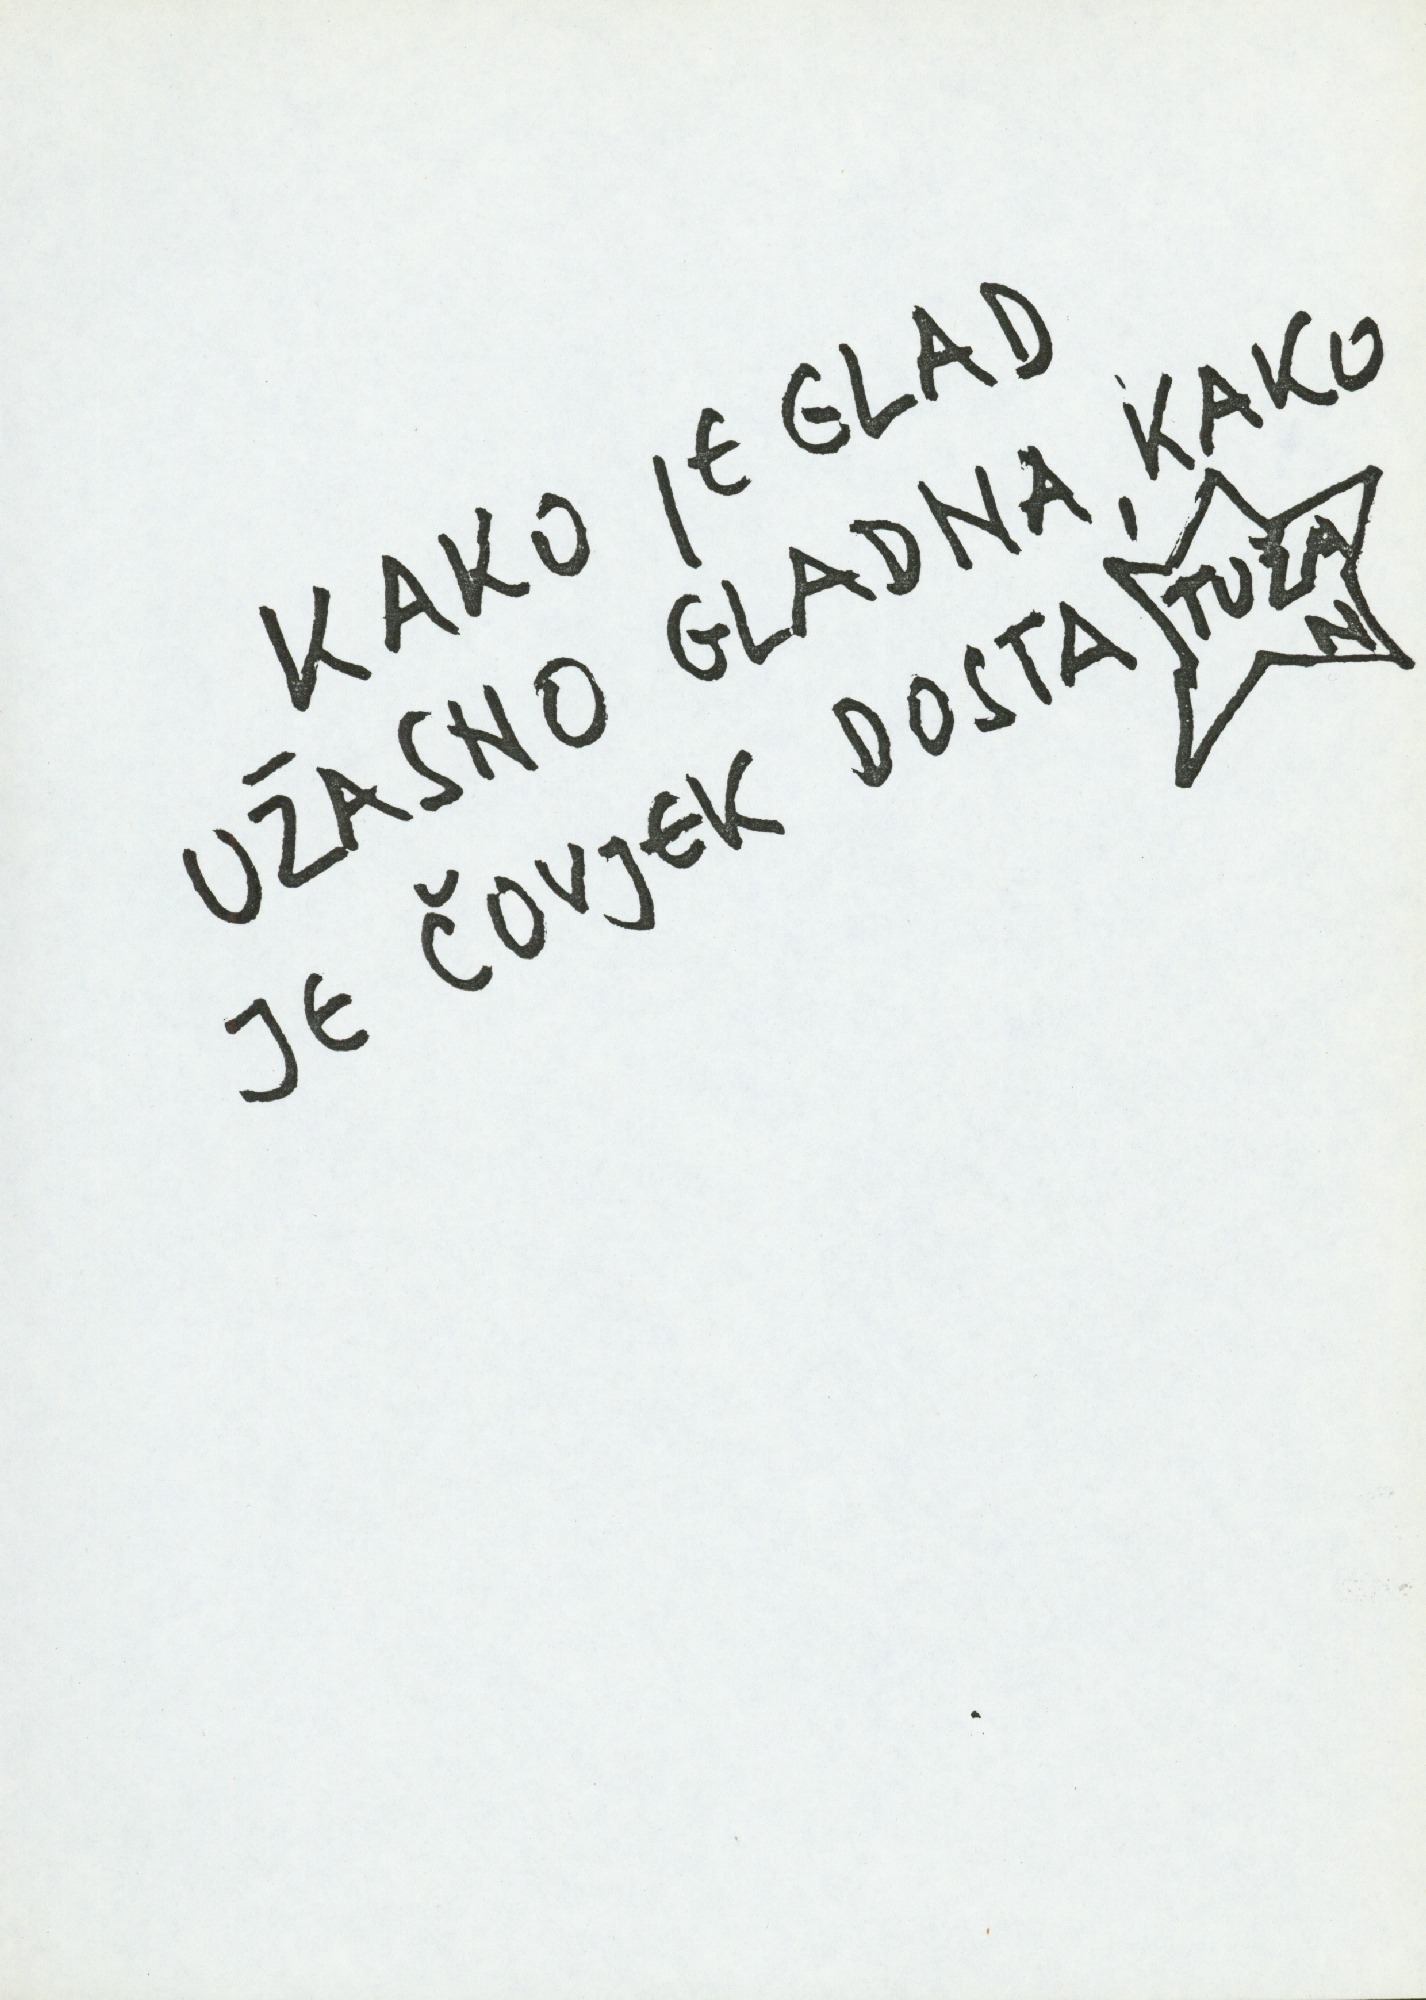 KAKO JE GLAD
UŽASNO GLADNA, KAKO
JE ČOVJEK DOSTA TUŽAN